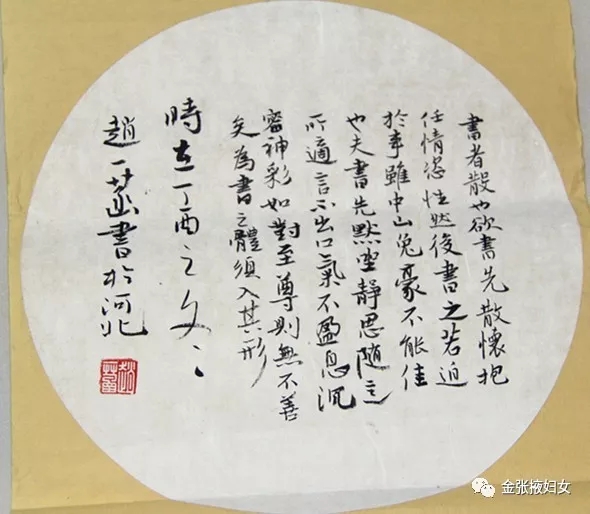 書者散也欲書先散懷抱
任情恣性然後書之若迫
於事雖中山兔豪不能佳
也夫書先默坐靜思隨意
所適言不出口氣不盈息沉
密神彩如對至尊則無不善
矣為書之體須入其形
時在丁酉之冬
趙書於河北
金张掖妇女